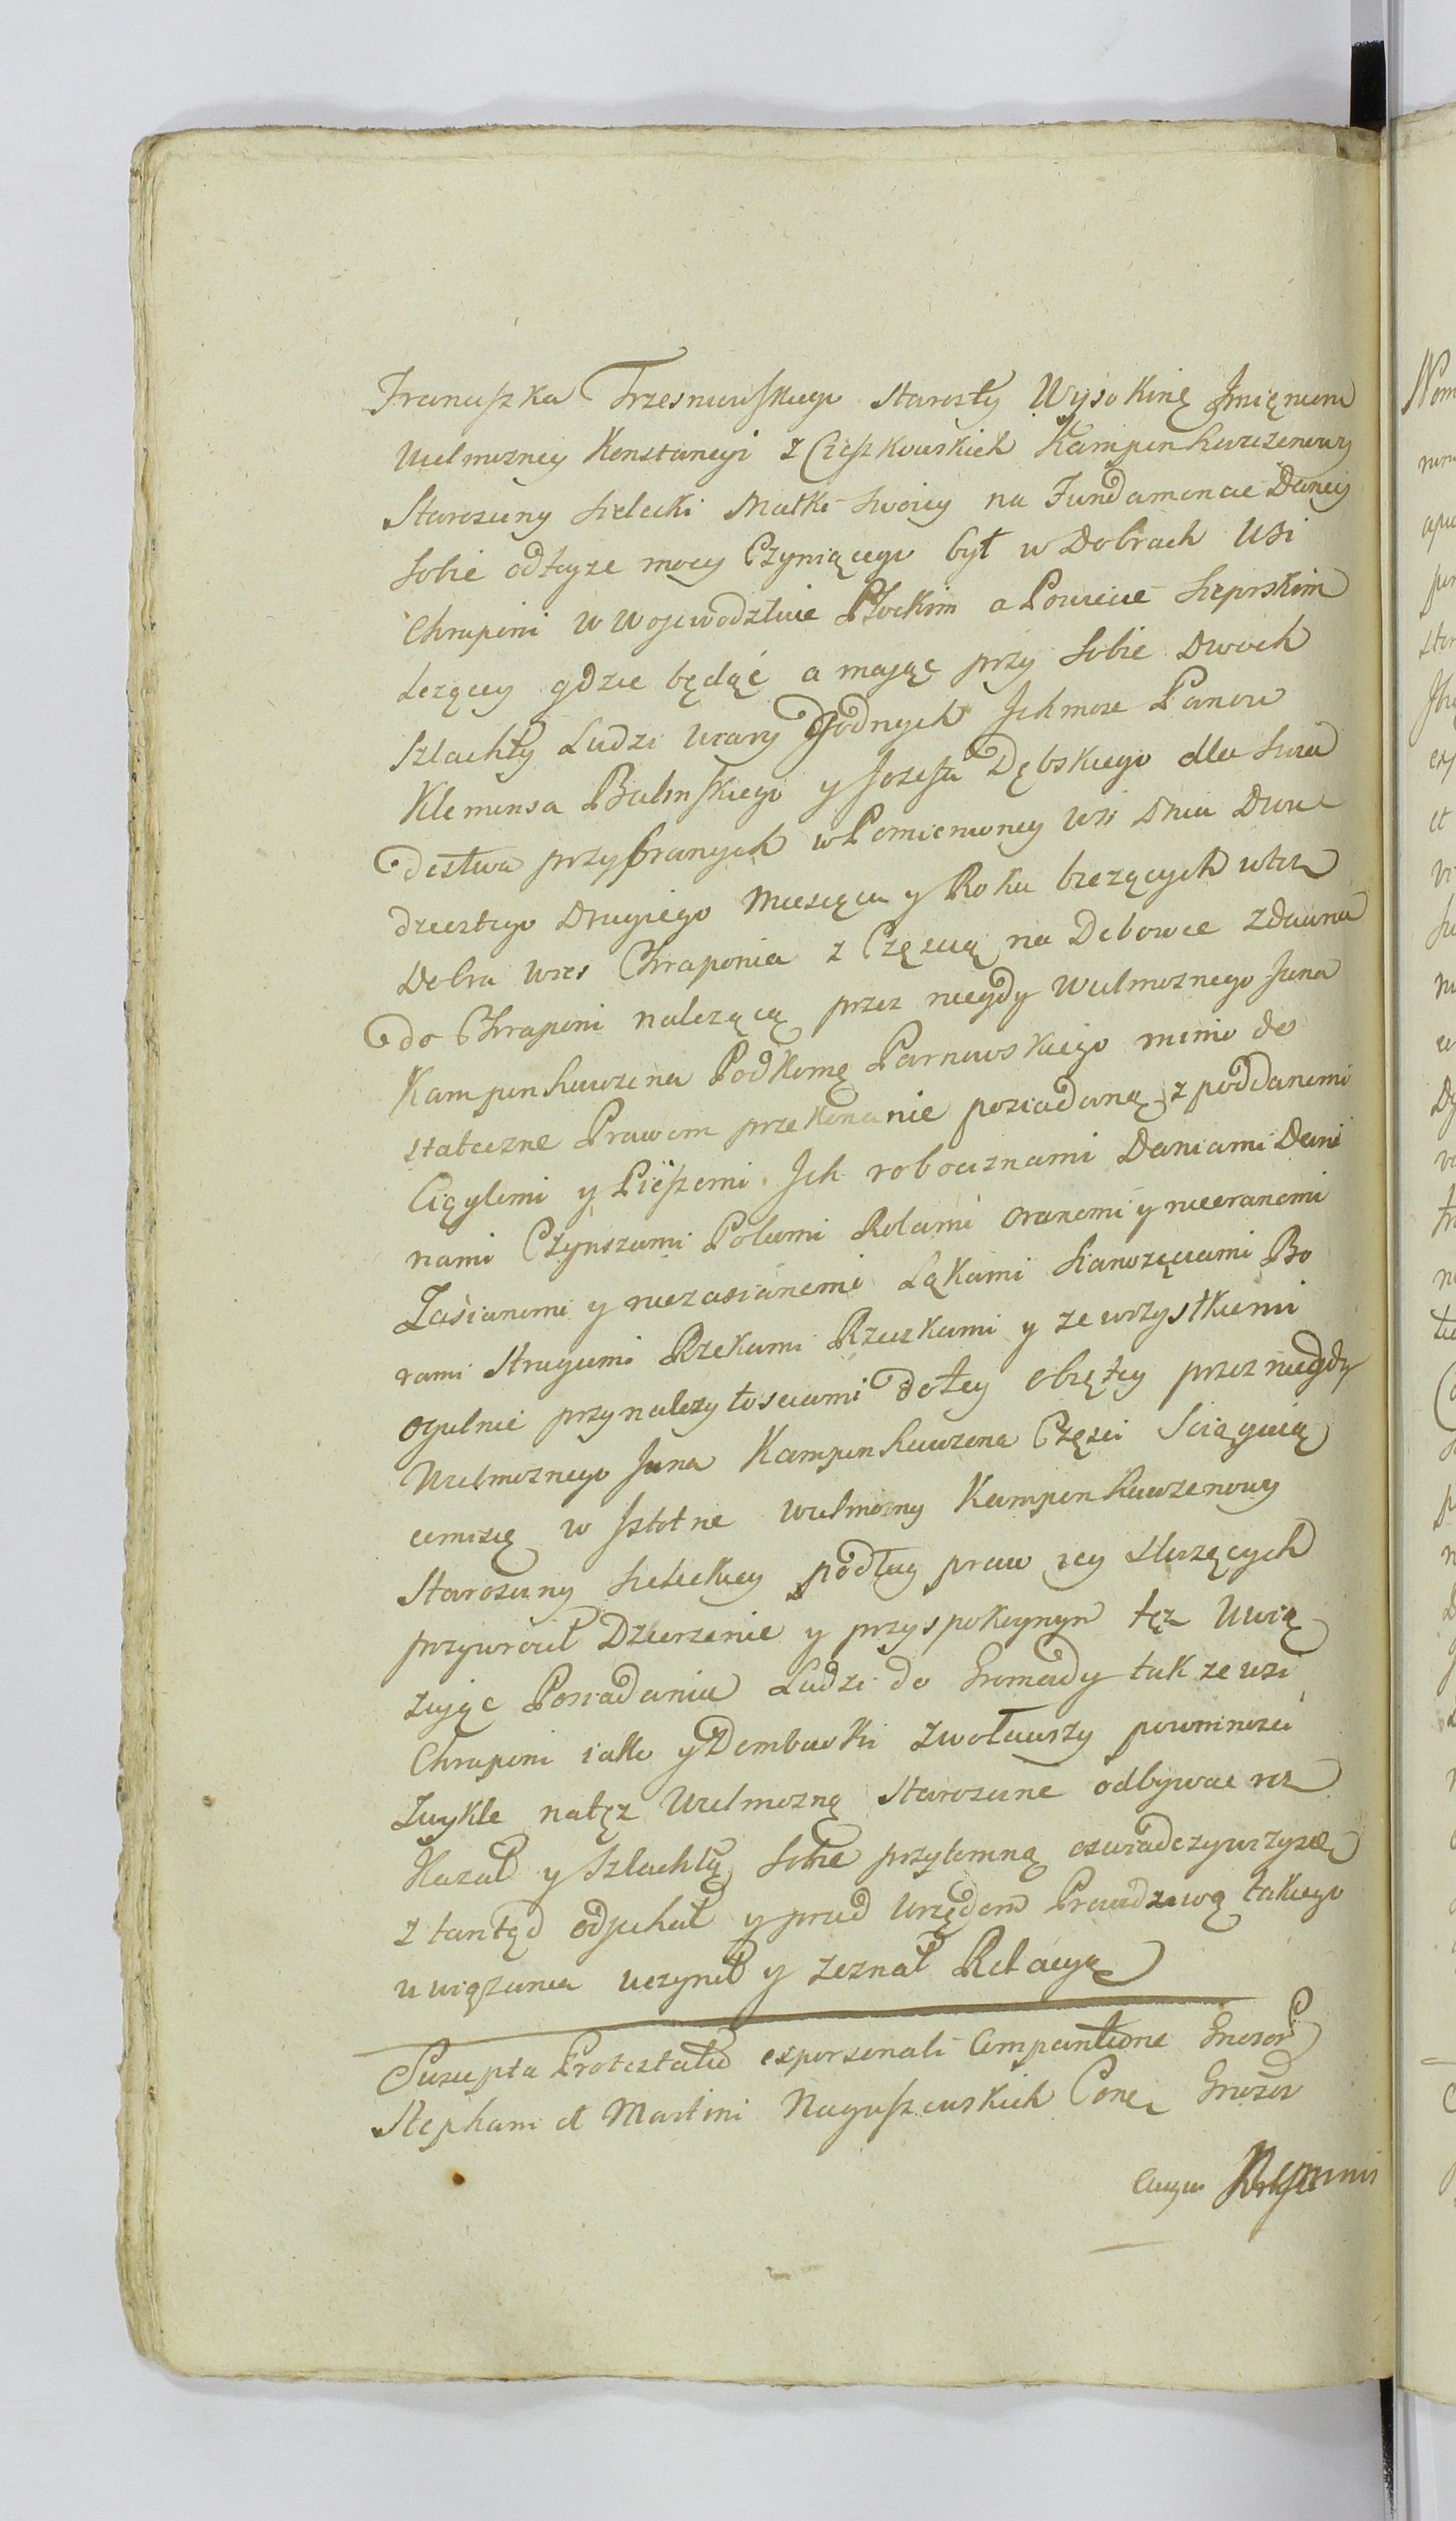 Franciszka Trzesniewskiego Starosty Wysokinę Jmięniem
Wielmozney Konstancyi z Cieszkowskich Kampenhauzenowy
Starosciny Sieleckiey Matki Swoiey na Fundamencie Daney
Sobie odteyze mocy Czyniącego był w Dobrach Wsi
Chraponi w Wojewodztwie Płockim a Powiecie Sieprskim
Lezącey gdzie będąc a maiąc przy Sobie Dwoch
Szlachty Ludzi Wiary Godnych Ichmosc Panow
Klemensa Balinskiego y Jozefa Dębskiego dla Swia
dectwa przybranych w Pomienioney Wsi Dnia Dwu
dziestego Drugiego Miesiąca y Roku biezących
Dobra Wies Chraponia z Częscią na Debowce zdawna
do Chraponi nalezącą przez niegdy Wielmoznego Jana
Kampenhauzena Podkomę Parnawskiego mimo do
stateczne Prawem przekonanie posiadaną z poddanemi
Ciągłemi y Pieszemi Ich robociznami Daniami Dani
nami Czynszami Polami Rolami oranemi y nieoranemi
Zasianemi y niezasianemi Łąkami Sianozęciami Bo
rami Strugami Rzekami Rzeczkami y ze wszystkiemi
ogulnie przynalezytosciami do tey obiętey przez niegdy
Wielmoznego Jana Kampenhauzena Częsci Sciągaią
cemisię w Istotne Wielmozny Kampenhauzenowy
Starosciny Sieleckiey podług praw iey Sluzących
przywrocił Dzierzenie y przy spokoynym teyz Uwią
zuiąc Posiadaniu Ludzi do Gromady tak ze wsi
Chraponi iako y Dembowki zwoławszy powinnosci
Zwykłe na tęz Wielmozną Staroscine odbywac roz
Kazał y Szlachtą Sobie przytomną oswiadczywszysię
z tamtąd odjechał y przed Urzędem Prawdziwą takiego
uwiązania uczynił y zeznał Relacyą
Suscepta Protestatio ex personali Comparitione Gnosor
Stephani et Martini Naguszewskich Cone Gnosor